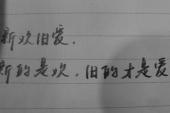 新欢旧爱.
新的是欢.旧的才是爱